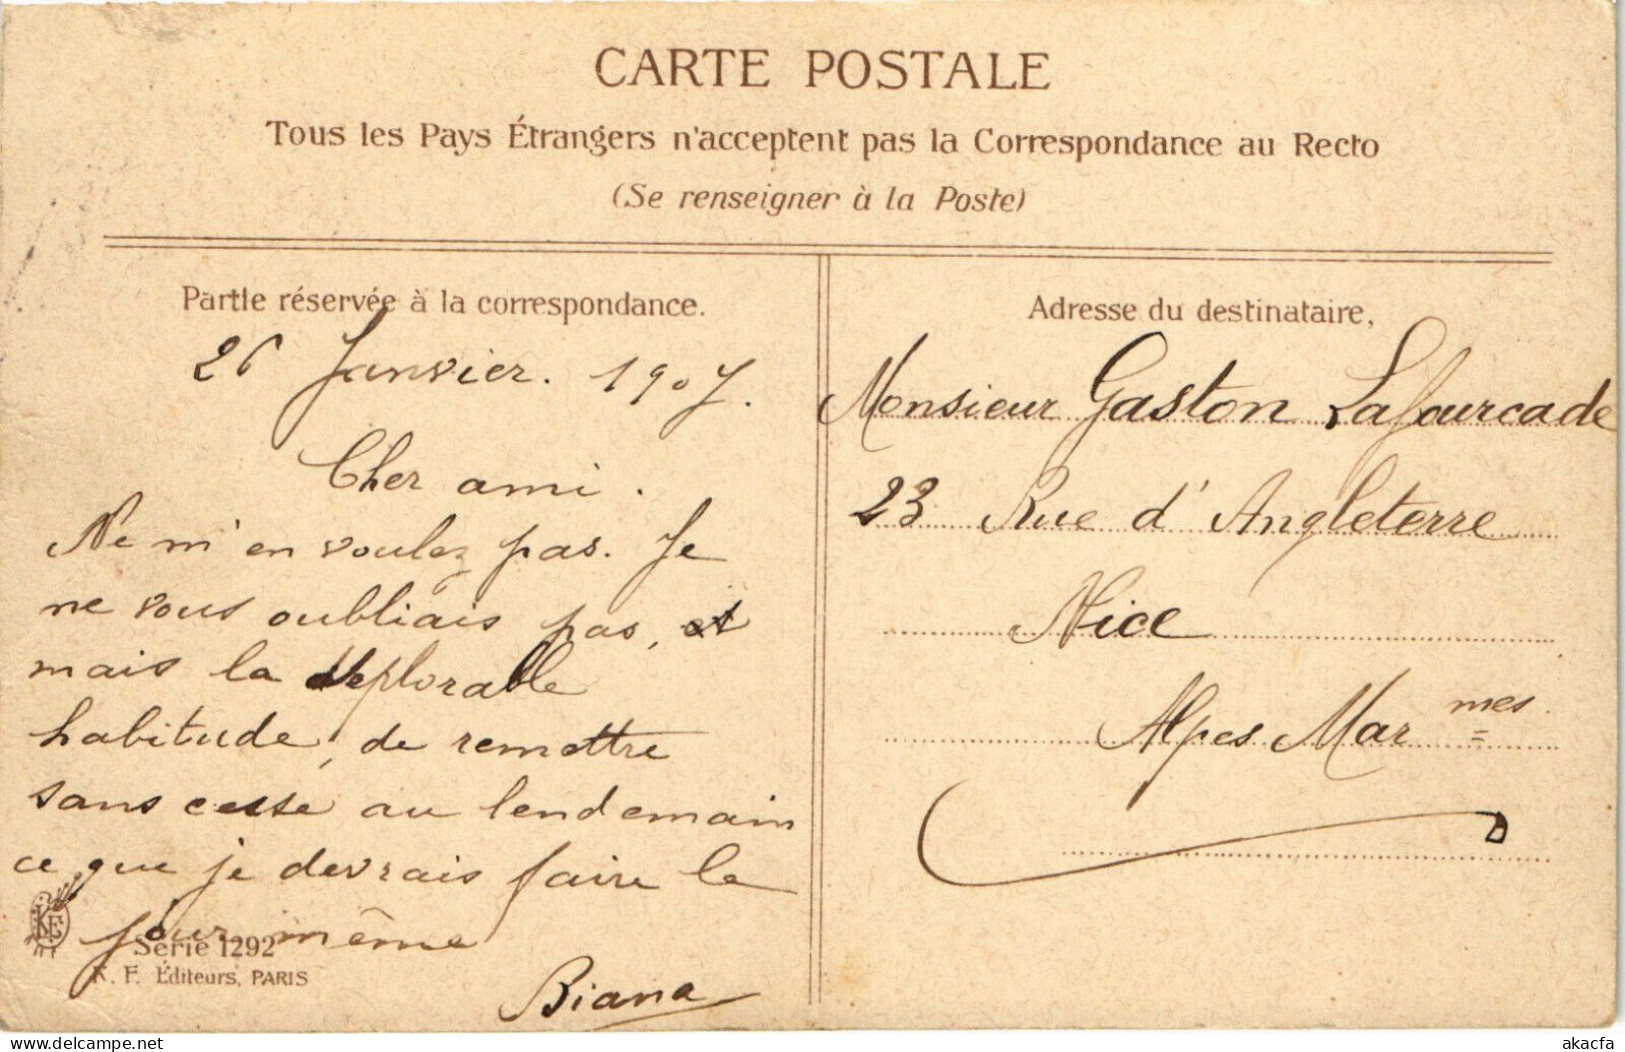 CARTE POSTALE
Tous les Pays Étrangers n'acceptent pas la Correspondance au Recto
(Se renseigner à la Poste)
Partie réservée à la correspondance.
26 Janvier. 1907.
Cher ami.
Ne m'en voulez pas. Je
ne vous oubliais pas, et
mais la deplorable
habitude, de remettre
sans cesse au lendemain
ce que je devrais faire le
jour même
Biana
KF
Série 1292
K. F. Éditeurs, PARIS
Adresse du destinataire,
Monsieur Gaston Lafourcade
23 Rue d'Angleterre
Nice
Alpes Mar mes
akacfa